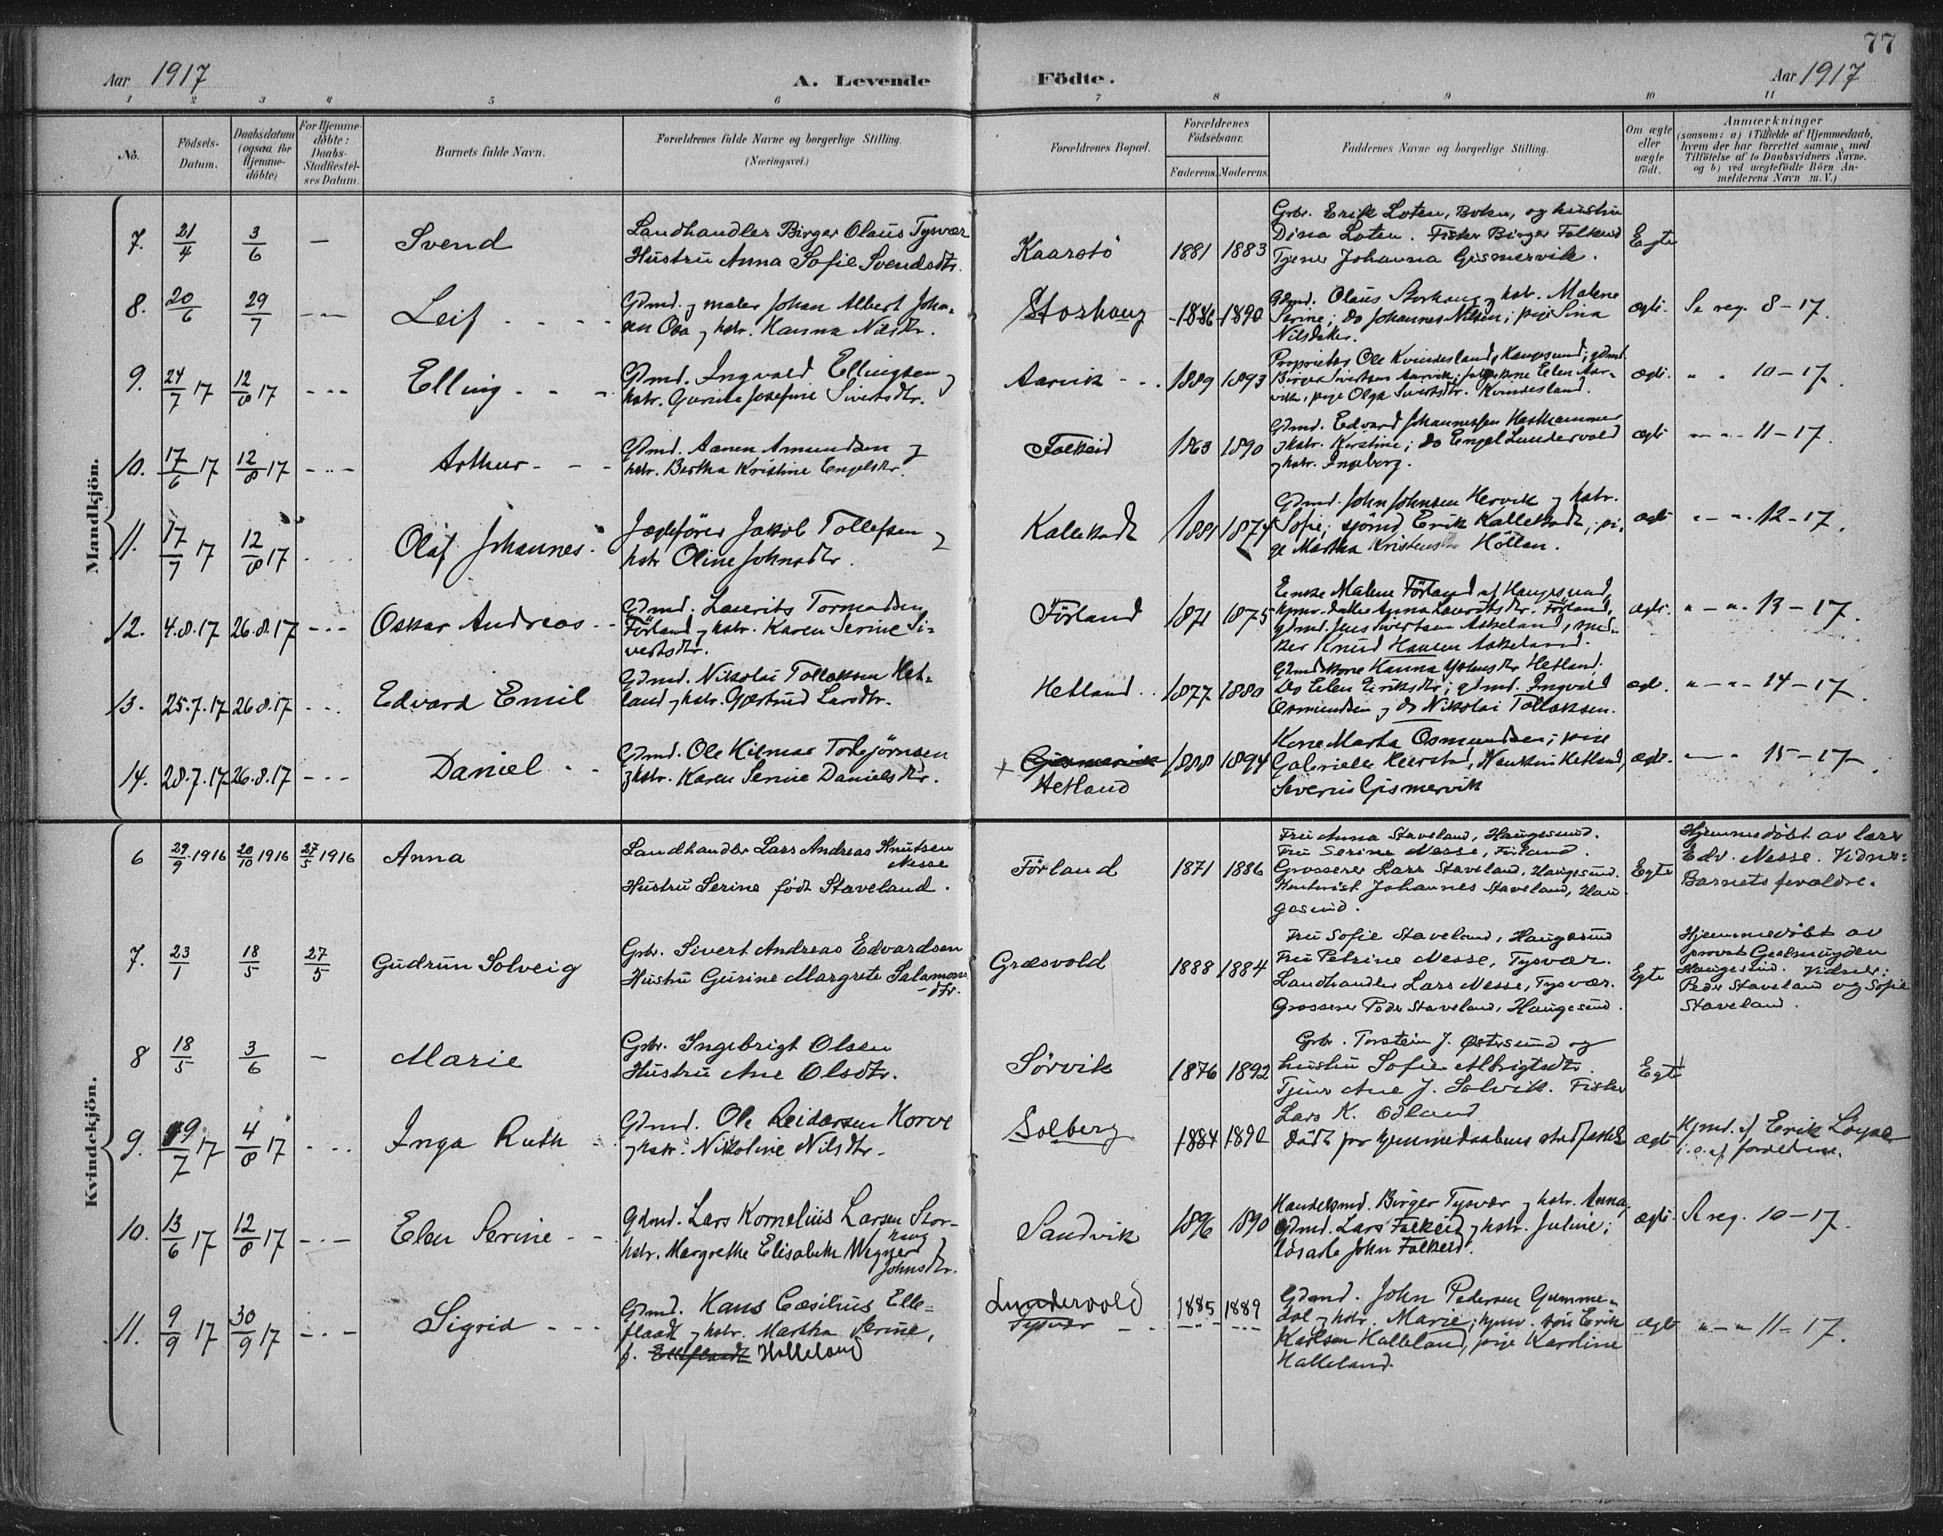 77
Aar 1917
A. Levende
Födte.
Aar 1917
1 2 3 4 5 6 7 8 9 10 11
No.
Födsels-
Datum.
Daabsdatum
(ogsaa for
Hjemme-
döbte)
For Hjemme-
döbte:
Daabs-
Stadfæstel-
ses Datum.
Barnets fulde Navn.
Forældrenes fulde Navne og borgerlige Stilling.
(Næringsvei.)
Forældrenes Bopæl.
Forældrenes
Födselsaar.
Faderens. Moderens.
Faddernes Navne og borgerlige Stilling.
Om ægte
eller
uægte
födt.
Anmærkninger
(saasom: a) i Tilfælde af Hjemmedaab,
hvem der har forrettet samme, med
Tilföielse af to Daabsvidners Navne,
og b) ved uægtefödte Börn An-
melderens Navn m. V.)
Mandkjön.
7. 21/4 3/6 — Svend
Landhandler Birger Olaus Tysvær
Hustru Anna Sofie Svendsdtr.
Kaarstö 1881 1883
Grbr. Erik Loten, Bokn, og hustru
Dina Loten. Fisker Birger Falkeid
Tjener Johanna Gismervik.
Egte
8. 20/6 29/7 Leif
Gdmd. og maler Johan Albert Johan-
sen Osa og hstr. Hanna Nilsdtr.
Storhaug 1886 1890
Gdmd. Olaus Storhaug og hstr. Malene
Serine; do Johannes Nilsen; pige Sina
Nilsdatter.
ægte. Se reg. 8-17.
9. 24/7 17 12/8 17 Elling
Gdmd. Ingvald Ellingsen og
hstr. Gurine Josefine Sivertsdtr.
Aarvik 1889 1893
Proprietær Ole Kvindesland, Haugesund; gdmd.
Birger Sivertsen Aarvik; Elen Aar-
vik, pige Olga Sivertsdtr. Kvindesland.
ægte. " " 10-17.
10. 17/6 17 12/8 17 Arthur
Gdmd. Aanen Amundsen og
hstr. Bertha Kristine Engelsdtr.
Falkeid 1863 1890
Gdmd. Edvard Johannesen Hesthammer
og hstr. Kirstine; do Engel Lundervold
og hstr. Ingeborg.
ægte " " 11-17.
11. 17/7 17 12/8 17 Olaf Johannes
Jægtförer Jakob Tollefsen og
hstr Oline Johnsdtr.
Kallekodt 1881 1874
Gdmd. John Johnsen Hervik og hstr.
Sofie; sjömd Erik Kallekodt; pi-
ge Martha Kristensdtr Höllen.
ægte " " 12-17.
12. 4.8.17 26.8.17 Oskar Andreas
Gdmd. Laurits Tormodsen
Förland og hstr. Karen Serine Si-
vertsdtr.
Förland 1871 1875
Enke Malene Förland af Haugesund,
hjmv. datter Anna Lauritsdtr. Förland,
gdmd. Jens Sivertsen Askeland, sned-
ker Knud Hansen Askeland.
ægte. " " 13-17.
13. 25.7.17 26.8.17 Edvard Emil
Gdmd. Nikolai Tollaksen Het-
land og hstr. Gjertrud Larsdtr.
Hetland 1877 1880
Gdmdskone Hanna Hetland.
Do Elen Eriksdtr; gdmd. Ingvald
Osmundsen og do Nikolai Tollaksen.
ægte. " " 14-17.
14. 28.7.17 26.8.17 Daniel
Gdmd. Ole Hilmar Torbjørnsen
og hstr. Karen Serine Danielsdtr.
+ Gismervik
Hetland
1888 1894
Kone Marta Osmundsen; pige
Gabrielle Hetland,
Severin Gismervik
ægte. " 15-17.
Kvindekjön.
6 29/9 1916 20/10 1916 27/5 1916 Anna
Landhandler Lars Andreas Knutsen
Nesse
Hustru Serine født Staveland.
Förland 1871 1886
Fru Anna Staveland, Haugesund.
Fru Serine Nesse, Förland.
Grosserer Lars Staveland, Haugesund.
Johannes Staveland, Hau-
gesund.
Egte
Hjemmedöbt av lærer
Edv. Nesse. Vidner:
Barnets forældre.
7. 23/1 18/5 27/5 Gudrun Solveig
Grbr. Sivert Andreas Edvardsen
Hustru Gurine Margrete Salamons-
dtr.
Græsvold 1888 1884
Fru Sofie Staveland, Haugesund
Fru Petrine Nesse, Tysvær.
Landhandler Lars Nesse, Tysvær.
Grosserer Peder Staveland, Haugesund.
Egte
Hjemmedöbt av
provst Gjelmuyden
Haugesund. Vidner:
Peder Staveland og Sofie
Staveland.
8 18/5 3/6 — Marie
Grbr. Ingebrigt Olsen
Hustru Ane Olsdtr.
Sørvik 1876 1892
Grbr. Torstein J. Østersund og
hustru Sofie Albrigtsdtr.
Tjener Ane J. Solvik. Fisker
Lars K. Odland
Egte
9. 19/7 17 4/8 17 Inga Ruth
Gdmd. Ole Reidarsen Horve
og hstr. Nikoline Nilsdtr.
Solberg 1884 1890
Död før hjemmedaabens stadfæstelse
ægte
Hjmd. af Erik
forældrene.
10. 13/6 17 12/8 17 Elen Serine
Gdmd. Lars Kornelius Larsen Stor-
haug
hstr. Margrethe Elisabeth Wegner
Johnsdtr.
Sandvik 1896 1890
Handelsmd. Birger Tysvær og hstr. Anna;
gdmd. Lars Falkeid og hstr. Juline;
løsarb John Falkeid.
ægte Se reg. 10-17.
11. 9/9 17 30/9 17 Sigrid
Gdmd. Hans Cæsilius Elle-
flaadt og hstr. Martha Serine,
f. Elleflaadt Halleland
Lundervold
Tysvær
1885 1889
Gdmd. John Pedersen Gumme-
dal og hstr. Marie; hjmv. søn Erik
Karlsen Halleland, pige Karoline
Halleland.
ægte " " 11-17.